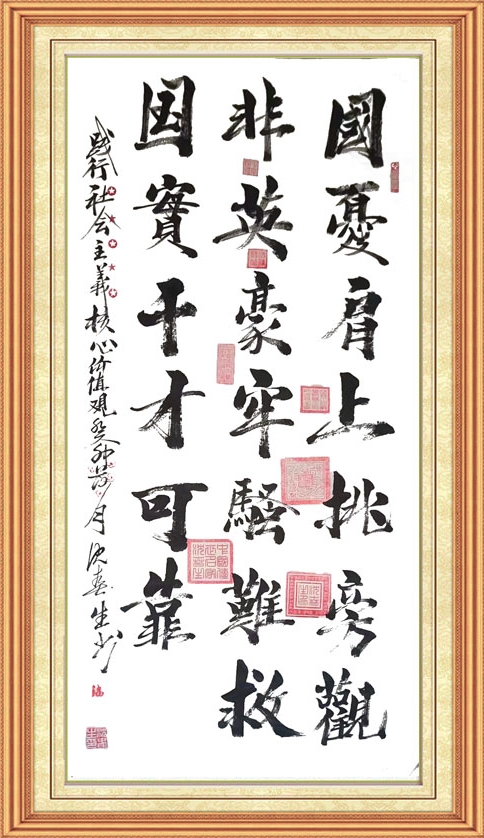 國憂肩上挑旁觀
非英豪牢騷難救
国實干才可靠
践行社会主義核心价值觀癸卯月沈春生书